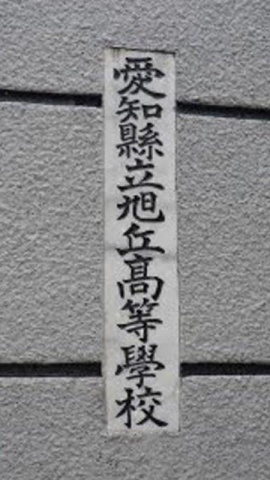 愛知縣立旭丘高等學校